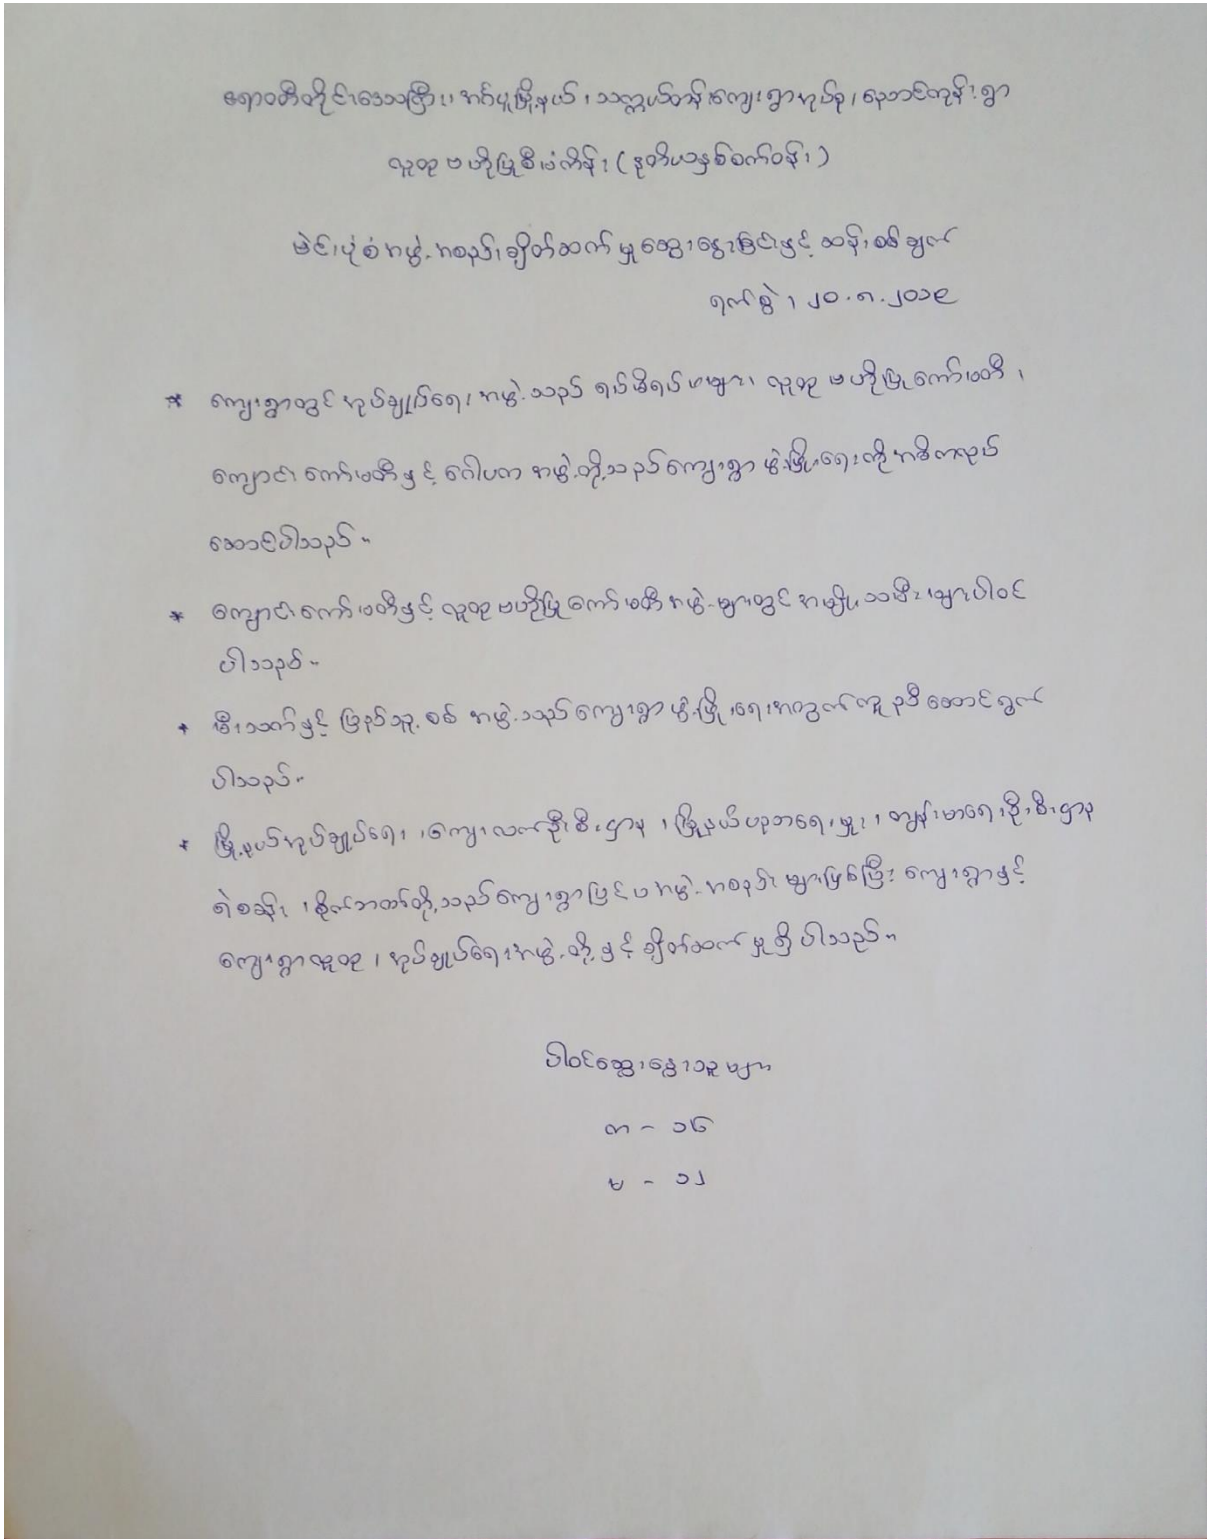 ဧရာဝတီတိုင်းဒေသကြီး၊ အင်္ဂပူမြို့နယ်၊ သက္ကယ်တန်းကျေးရွာအုပ်စု၊ ညောင်ကုန်းရွာ
လူထုဗဟိုပြုစီမံကိန်း (ဒုတိယနှစ်စက်ဝန်း)
မဲင်းပုံစံအဖွဲ့အစည်းချိတ်ဆက်မှုဆွေးနွေးခြင်းနှင့် ဆန်းစစ်ချက်
ရက်စွဲ၊ ၂၀.၈.၂၀၁၉
* ကျေးရွာတွင် အုပ်ချုပ်ရေးအဖွဲ့သည် ရပ်မိရပ်ဖများ၊ လူထုဗဟိုပြုကော်မတီ၊
ကျောင်းကော်မတီနှင့် ဂေါပကအဖွဲ့တို့သည် ကျေးရွာဖွံ့ဖြိုးရေးကို အဓိကလုပ်
ဆောင်ပါသည်။
* ကျောင်းကော်မတီနှင့် လူထုဗဟိုပြုကော်မတီအဖွဲ့များတွင် အမျိုးသမီးများပါဝင်
ပါသည်။
* မီးသတ်နှင့် ပြည်သူ့စစ်အဖွဲ့သည် ကျေးရွာဖွံ့ဖြိုးရေးအတွက် ကူညီဆောင်ရွက်
ပါသည်။
* မြို့နယ်အုပ်ချုပ်ရေး၊ ကျေးလက်ဦးစီးဌာန၊ မြို့နယ်ပညာရေးမှူး၊ ကျန်းမာရေးဦးစီးဌာန
ရဲစခန်း၊ စိုက်ဘဏ်တို့သည် ကျေးရွာပြင်ပအဖွဲ့အစည်းများဖြစ်ပြီး ကျေးရွာနှင့်
ကျေးရွာလူထု၊ အုပ်ချုပ်ရေးအဖွဲ့တို့နှင့် ချိတ်ဆက်မှုရှိပါသည်။
ပါဝင်ဆွေးနွေးသူများ
က - ၁၆
မ - ၁၂